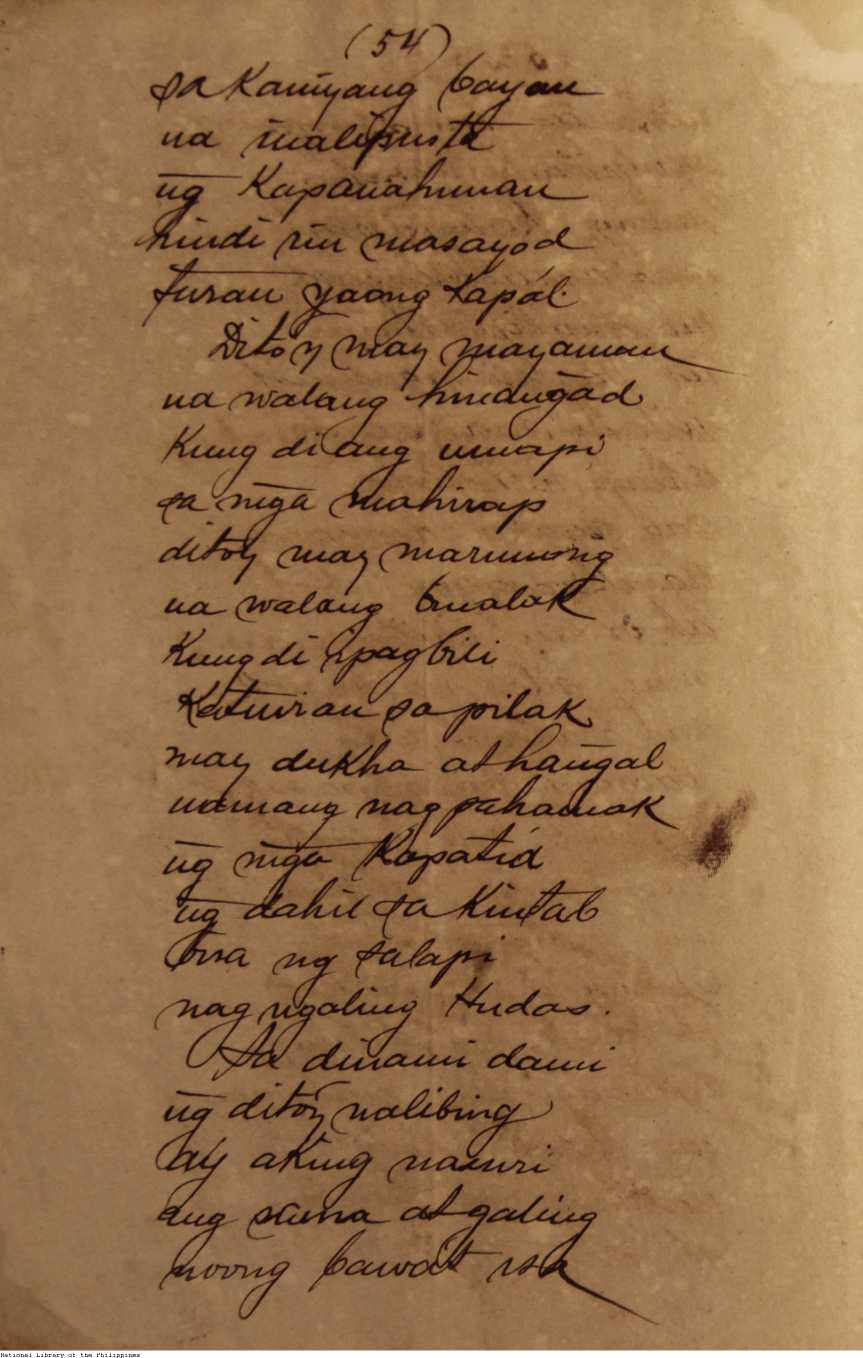 (54)
sa Kaniyang bayan
na inalipusta
n͠g Kapanahunan
hindi rin masayod
turan yaong Kapál.
Dito'y may mayaman
na walang hinan͠gad
Kung di ang umapi
sa m͠ga mahirap
dito'y may marunong
na walang binalak
Kung di ipagbili
Katuiran sa pilak
may dukha at han͠gal
namang nagpahamak
n͠g m͠ga Kapatid
n͠g dahil sa Kintab
ng salapi
nag ngaling Hudas.
Sa dinami dami
n͠g dito'y nalibing
ay aking nasuri
ang sama at galing
noong bawa't isa
National Library of the Philippines